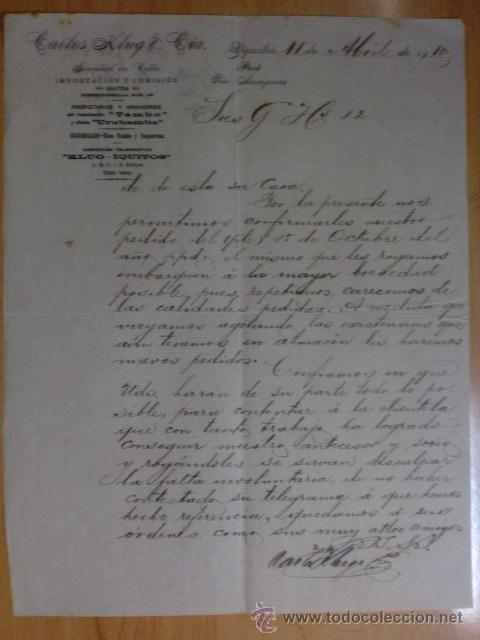 Carlos Klug & Cía.
Sociedad en Cta.
IMPORTACION Y COMISIÓN
IQUITOS
PROPIETARIOS Y ARMADORES
del vaporcito "Tambo"
y lancha "Urubamba"
"KLUG-IQUITOS"
Iquitos, 11 de Abril de 1910
Perú
Río Amazonas
Sres G Hs 12
de de esta su Casa.
Por la presente nos
permitimos confirmarles nuestro
pedido del 1º de Octubre del
año ppdo, el mismo que les rogamos
embarquen á la mayor brevedad
posible, pues, repetimos, carecemos de
las calidades pedidas. A medida que
veamos agotando las existencias que
aun tenemos en almacén les haremos
nuevos pedidos.
Confiamos en que
Uds, harán de su parte todo lo po-
sible, para contentar á la clientela
que con tanto trabajo ha logrado
conseguir nuestro antecesor y socio
y rogándoles se sirvan disculpar
la falta involuntaria, de no haber
contestado su telegrama á que hemos
hecho referencia, quedamos á sus
órdenes, como sus muy attos amigos
y S. S.
Carlos Klug &
www.todocoleccion.net